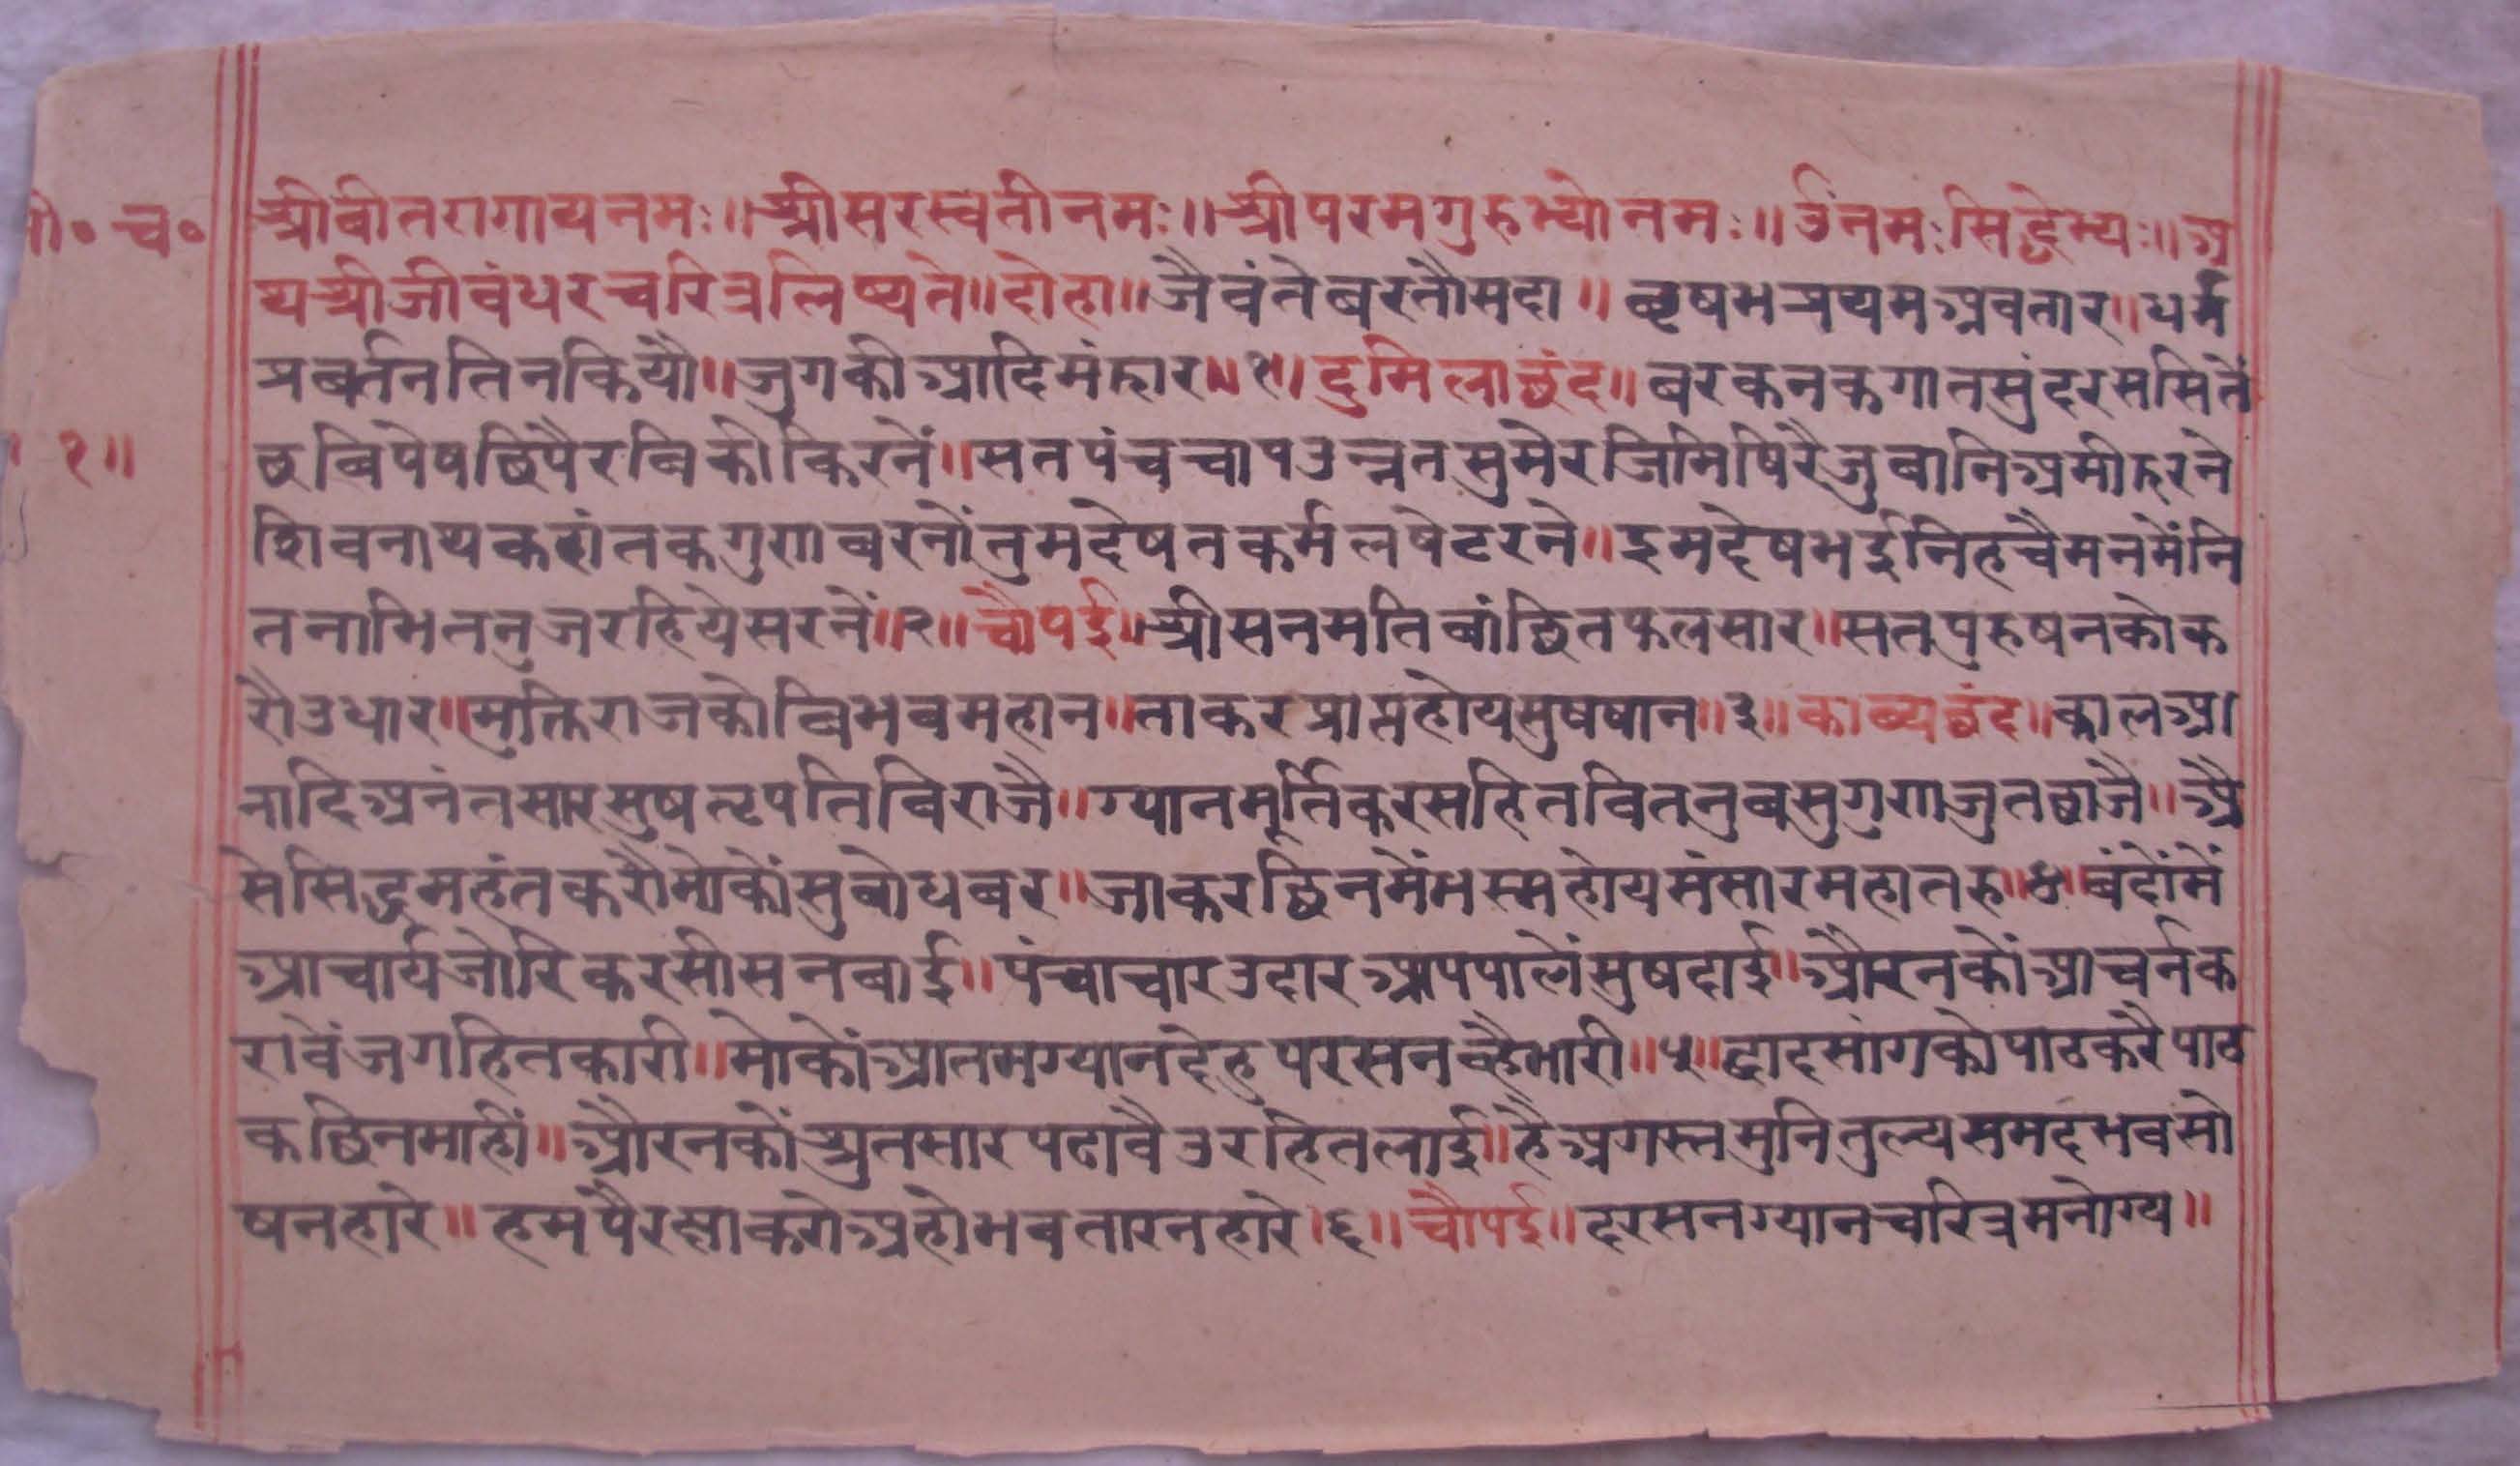 श्रीवीतरागायनमः॥श्रीसरस्वतीनमः॥श्रीपरमगुरुभ्योनमः॥ॐनमःसिद्धेभ्यः॥अ
थश्रीजीवंधरचरित्रलिष्यते॥दोहा॥जैवंतेबरतौसदा॥वृषभप्रथमअवतार॥धर्म
प्रबर्तनतिनकियौ॥जुगकीआदिमंहार॥१॥दुमिलाछंद॥बरकनकगातसुंदरससितें
छबिपेषछिपैरबिकीकिरनें॥सतपंचचापउन्नतसुमेरजिमिषिरैजुबानिअमीहरने
शिवनायकहांतकगुणबरनोंतुमदेषतकर्मलषेटरने॥इमदेषभईनिहचैमनमेंनि
तनाभितनुजरहियेसरनें॥२॥चौपई॥श्रीसनमतिबांछितफलसार॥सतपुरुषनकोक
रौउधार॥मुक्तिराजकोबिभवमहान॥ताकरप्राप्तहोयसुषषान॥३॥काव्यछंद॥कालआ
नादिअनंतसारसुषतृपतिविराजै॥ग्यानमूर्तिकरसहितवितनुबसुगुणजुतछाजै॥अै
सेसिद्धमहंतकरौमोकोंसुबोधबर॥जाकरछिनमेंभस्महोयसंसारमहातरु॥४॥बंदोंमें
आचार्यजोरिकरसीसनबाई॥पंचाचारउदारआपपालेंसुषदाई॥औरनकोंआचर्नक
रावेंजगहितकारी॥मोकोंआतमग्यानदेहुपरसनव्हैभारी॥५॥द्वादसांगकोपाठकरैपाठ
कछिनमाहीं॥औरनकोंश्रुतसारपढावैउरहितलाई॥हैअगस्तमुनितुल्यसमदभवसो
षनहारे॥हमपैरक्षाकरोअहोभवतारनहारे।६॥चौपई॥दरसनग्यानचरित्रमनोग्य॥
च॰
१॥